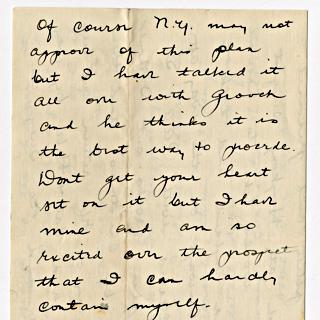 Of course N.Y. may not
approve of this plan
but I have talked it
all over with Grouch
and he thinks it is
the best way to procede.
Dont get your heart
set on it but I have
mine and am so
excited over the prospect
that I can hardly
contain myself.